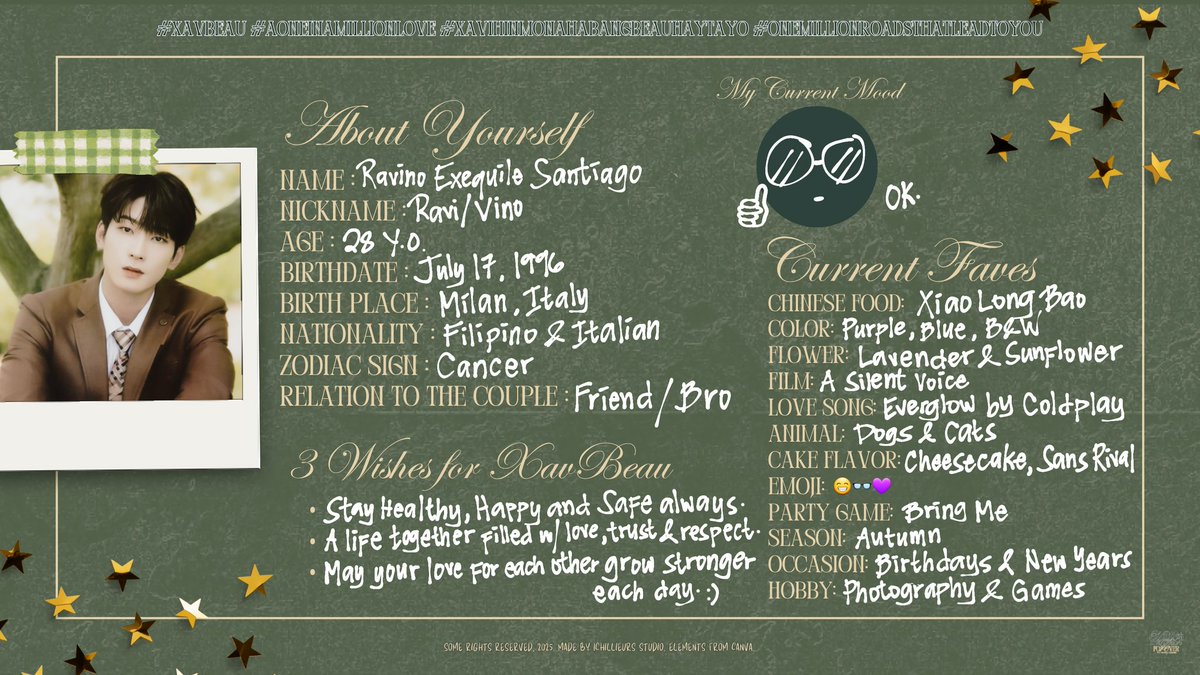 #XAVBEAU #AONEINAMILLIONLOVE #XAVIHINMONAHABANGBEAUHAYTAYO #ONEMILLIONROADSTHATLEADTOYOU
About Yourself
NAME : Ravino Exequile Santiago
NICKNAME : Ravi/Vino
AGE : 28 Y.O.
BIRTHDATE : July 17, 1996
BIRTH PLACE : Milan, Italy
NATIONALITY : Filipino & Italian
ZODIAC SIGN : Cancer
RELATION TO THE COUPLE : Friend/Bro
3 Wishes for XavBeau
• Stay Healthy, Happy and Safe always.
• A life together filled w/ love, trust & respect.
• May your love for each other grow stronger
each day. :)
My Current Mood
OK.
Current Faves
CHINESE FOOD: Xiao Long Bao
COLOR: Purple, Blue, B&W
FLOWER: Lavender & Sunflower
FILM: A Silent Voice
LOVE SONG: Everglow by Coldplay
ANIMAL: Dogs & Cats
CAKE FLAVOR: Cheesecake, Sans Rival
EMOJI: 😁👓💜
PARTY GAME: Bring Me
SEASON: Autumn
OCCASION: Birthdays & New Years
HOBBY: Photography & Games
SOME RIGHTS RESERVED, 2025. MADE BY ICHILLIEURS STUDIO, ELEMENTS FROM CANVA.